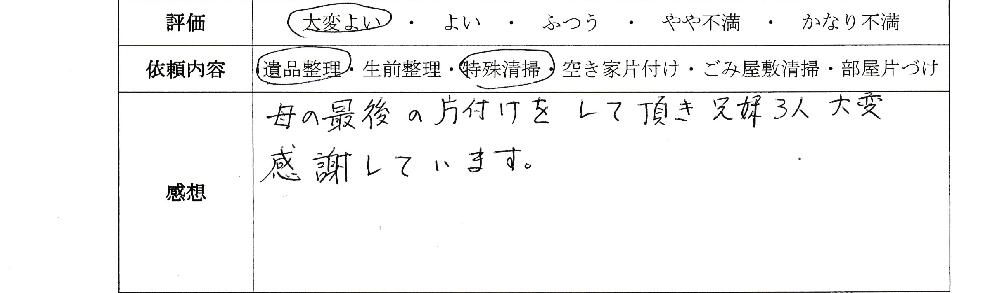 評価 大変よい ・ よい ・ ふつう ・ やや不満 ・ かなり不満
依頼内容 遺品整理・生前整理・特殊清掃・空き家片付け・ごみ屋敷清掃・部屋片づけ
感想
母の最後の片付けをして頂き兄妹3人大変
感謝しています。